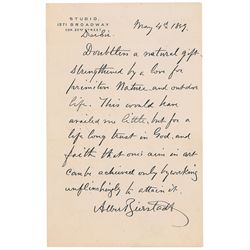 STUDIO,
1271 BROADWAY
May 4th 1889.
Dear Sir.
Doubtless a natural gift
strengthened by a love for
primitive Nature and outdoor
life. This would have
availed me little, but for a
life long trust in God, and
faith that one's aims in art
can be achieved only by working
unflinchingly to attain it.
Albert Bierstadt